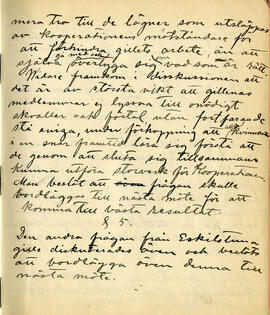 mera tro till de lögner som utsläppas
av kooperationens motståndare för
att förhindra gillets arbete, än att
själva taga reda och övertyga sig om vad som är rätt.
Vidare framkom i diskussionen att
det är av största vikt att gillenas
medlemmar ej lyssna till onödigt
skvaller och förtal utan fortfarande
stå eniga, under förhoppning att alla kvinnor
i en snar framtid lära sig förstå att
de genom att sluta sig tillsammans
kunna utföra storverk för Kooperationen.
Man beslöt att frågan skulle
bordläggas till nästa möte för att
komma till bästa resultat.
§ 5.
Den andra frågan från Eskilstuna
gille diskuterades även och beslöts
att bordlägga även denna till
nästa möte.